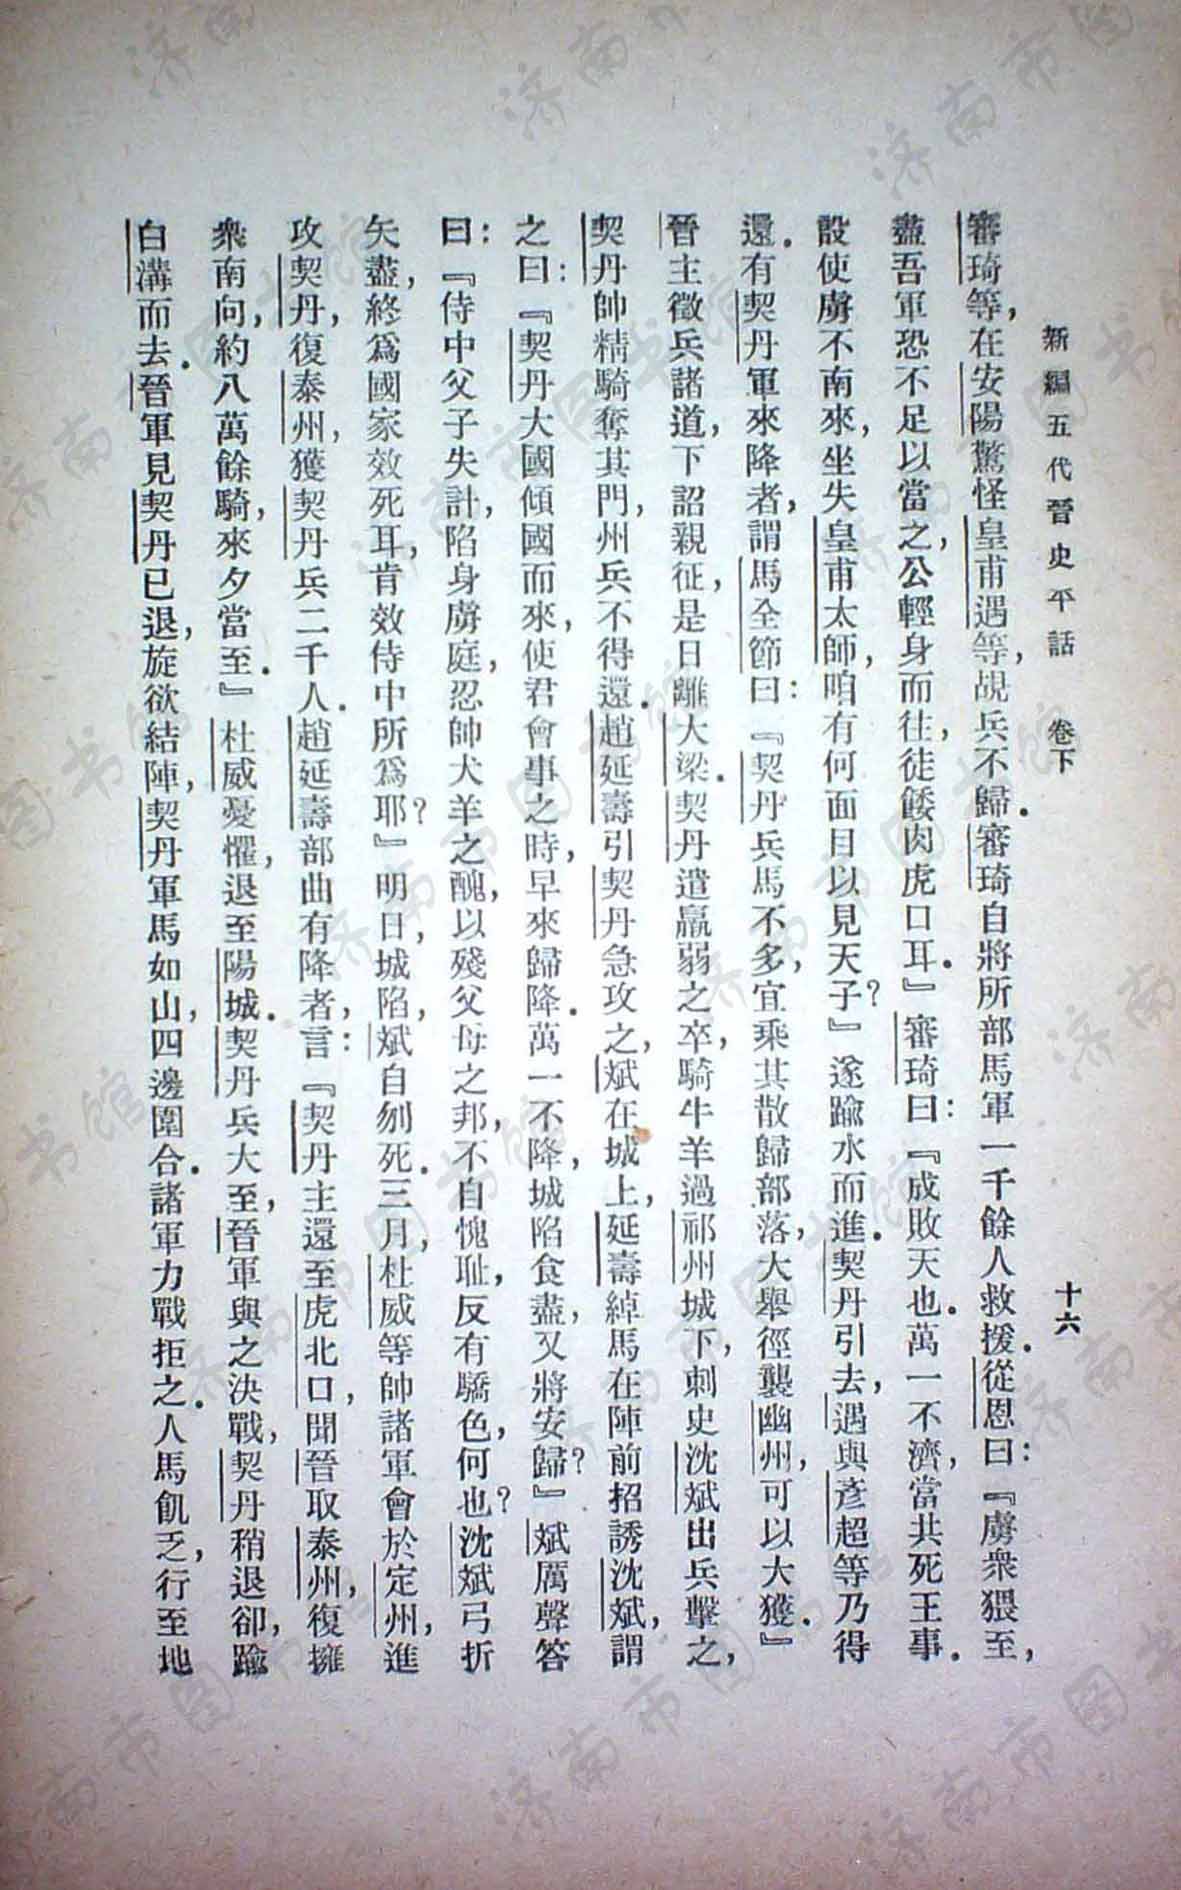 新編五代晉史平話　卷下
十六
審琦等，在安陽驚怪皇甫遇等，覘兵不歸．審琦自將所部馬軍一千餘人救援．從恩曰：『虜衆猥至，
盡吾軍恐不足以當之，公輕身而往，徒餧肉虎口耳．』審琦曰：『成敗天也．萬一不濟，當共死王事．
設使虜不南來，坐失皇甫太師，咱有何面目以見天子？』遂踰水而進．契丹引去，遇與彥超等乃得
還．有契丹軍來降者，謂馬全節曰：『契丹兵馬不多，宜乘其散歸部落，大舉徑襲幽州，可以大獲．』
晉主徵兵諸道，下詔親征，是日離大梁．契丹遣羸弱之卒，騎牛羊過祁州城下，刺史沈斌出兵擊之，
契丹帥精騎奪其門，州兵不得還．趙延壽引契丹急攻之，斌在城上，延壽綽馬在陣前招誘沈斌，謂
之曰：『契丹大國傾國而來，使君會事之時，早來歸降．萬一不降，城陷食盡，又將安歸？』斌厲聲答
曰：『侍中父子失計，陷身虜庭，忍帥犬羊之醜，以殘父母之邦，不自愧耻，反有驕色，何也？沈斌弓折
矢盡，終爲國家效死耳，肯效侍中所爲耶？』明日，城陷，斌自刎死．三月，杜威等帥諸軍會於定州，進
攻契丹，復泰州，獲契丹兵二千人．趙延壽部曲有降者，言：『契丹主還至虎北口，聞晉取泰州，復擁
衆南向，約八萬餘騎，來夕當至．』杜威憂懼，退至陽城．契丹兵大至，晉軍與之決戰，契丹稍退卻，踰
白溝而去．晉軍見契丹已退，旋欲結陣，契丹軍馬如山，四邊圍合．諸軍力戰拒之．人馬飢乏，行至地
济南市图书馆